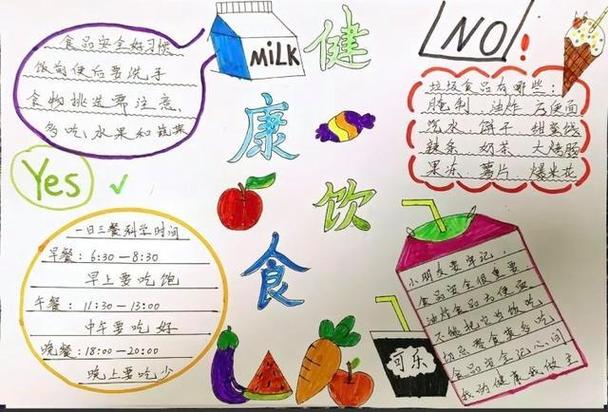 健康饮食
MiLK
NO!
Yes
食品安全好习惯
饭前便后要洗手
食物挑选要注意
多吃水果和蔬菜
垃圾食品有哪些：
腌制 油炸 方便面
汽水 饼干 甜蛋筒
辣条 奶茶 火烤肠
果冻 薯片 爆米花
一日三餐科学时间
早餐：6:30—8:30
早上要吃饱
午餐：11:30—13:00
中午要吃好
晚餐：18:00—20:00
晚上要吃少
可乐
小朋友要牢记，
食品安全很重要
油炸食品方便面
不能把它当饭吃
切忌零食莫多吃
食品安全记心间
我为健康我做主